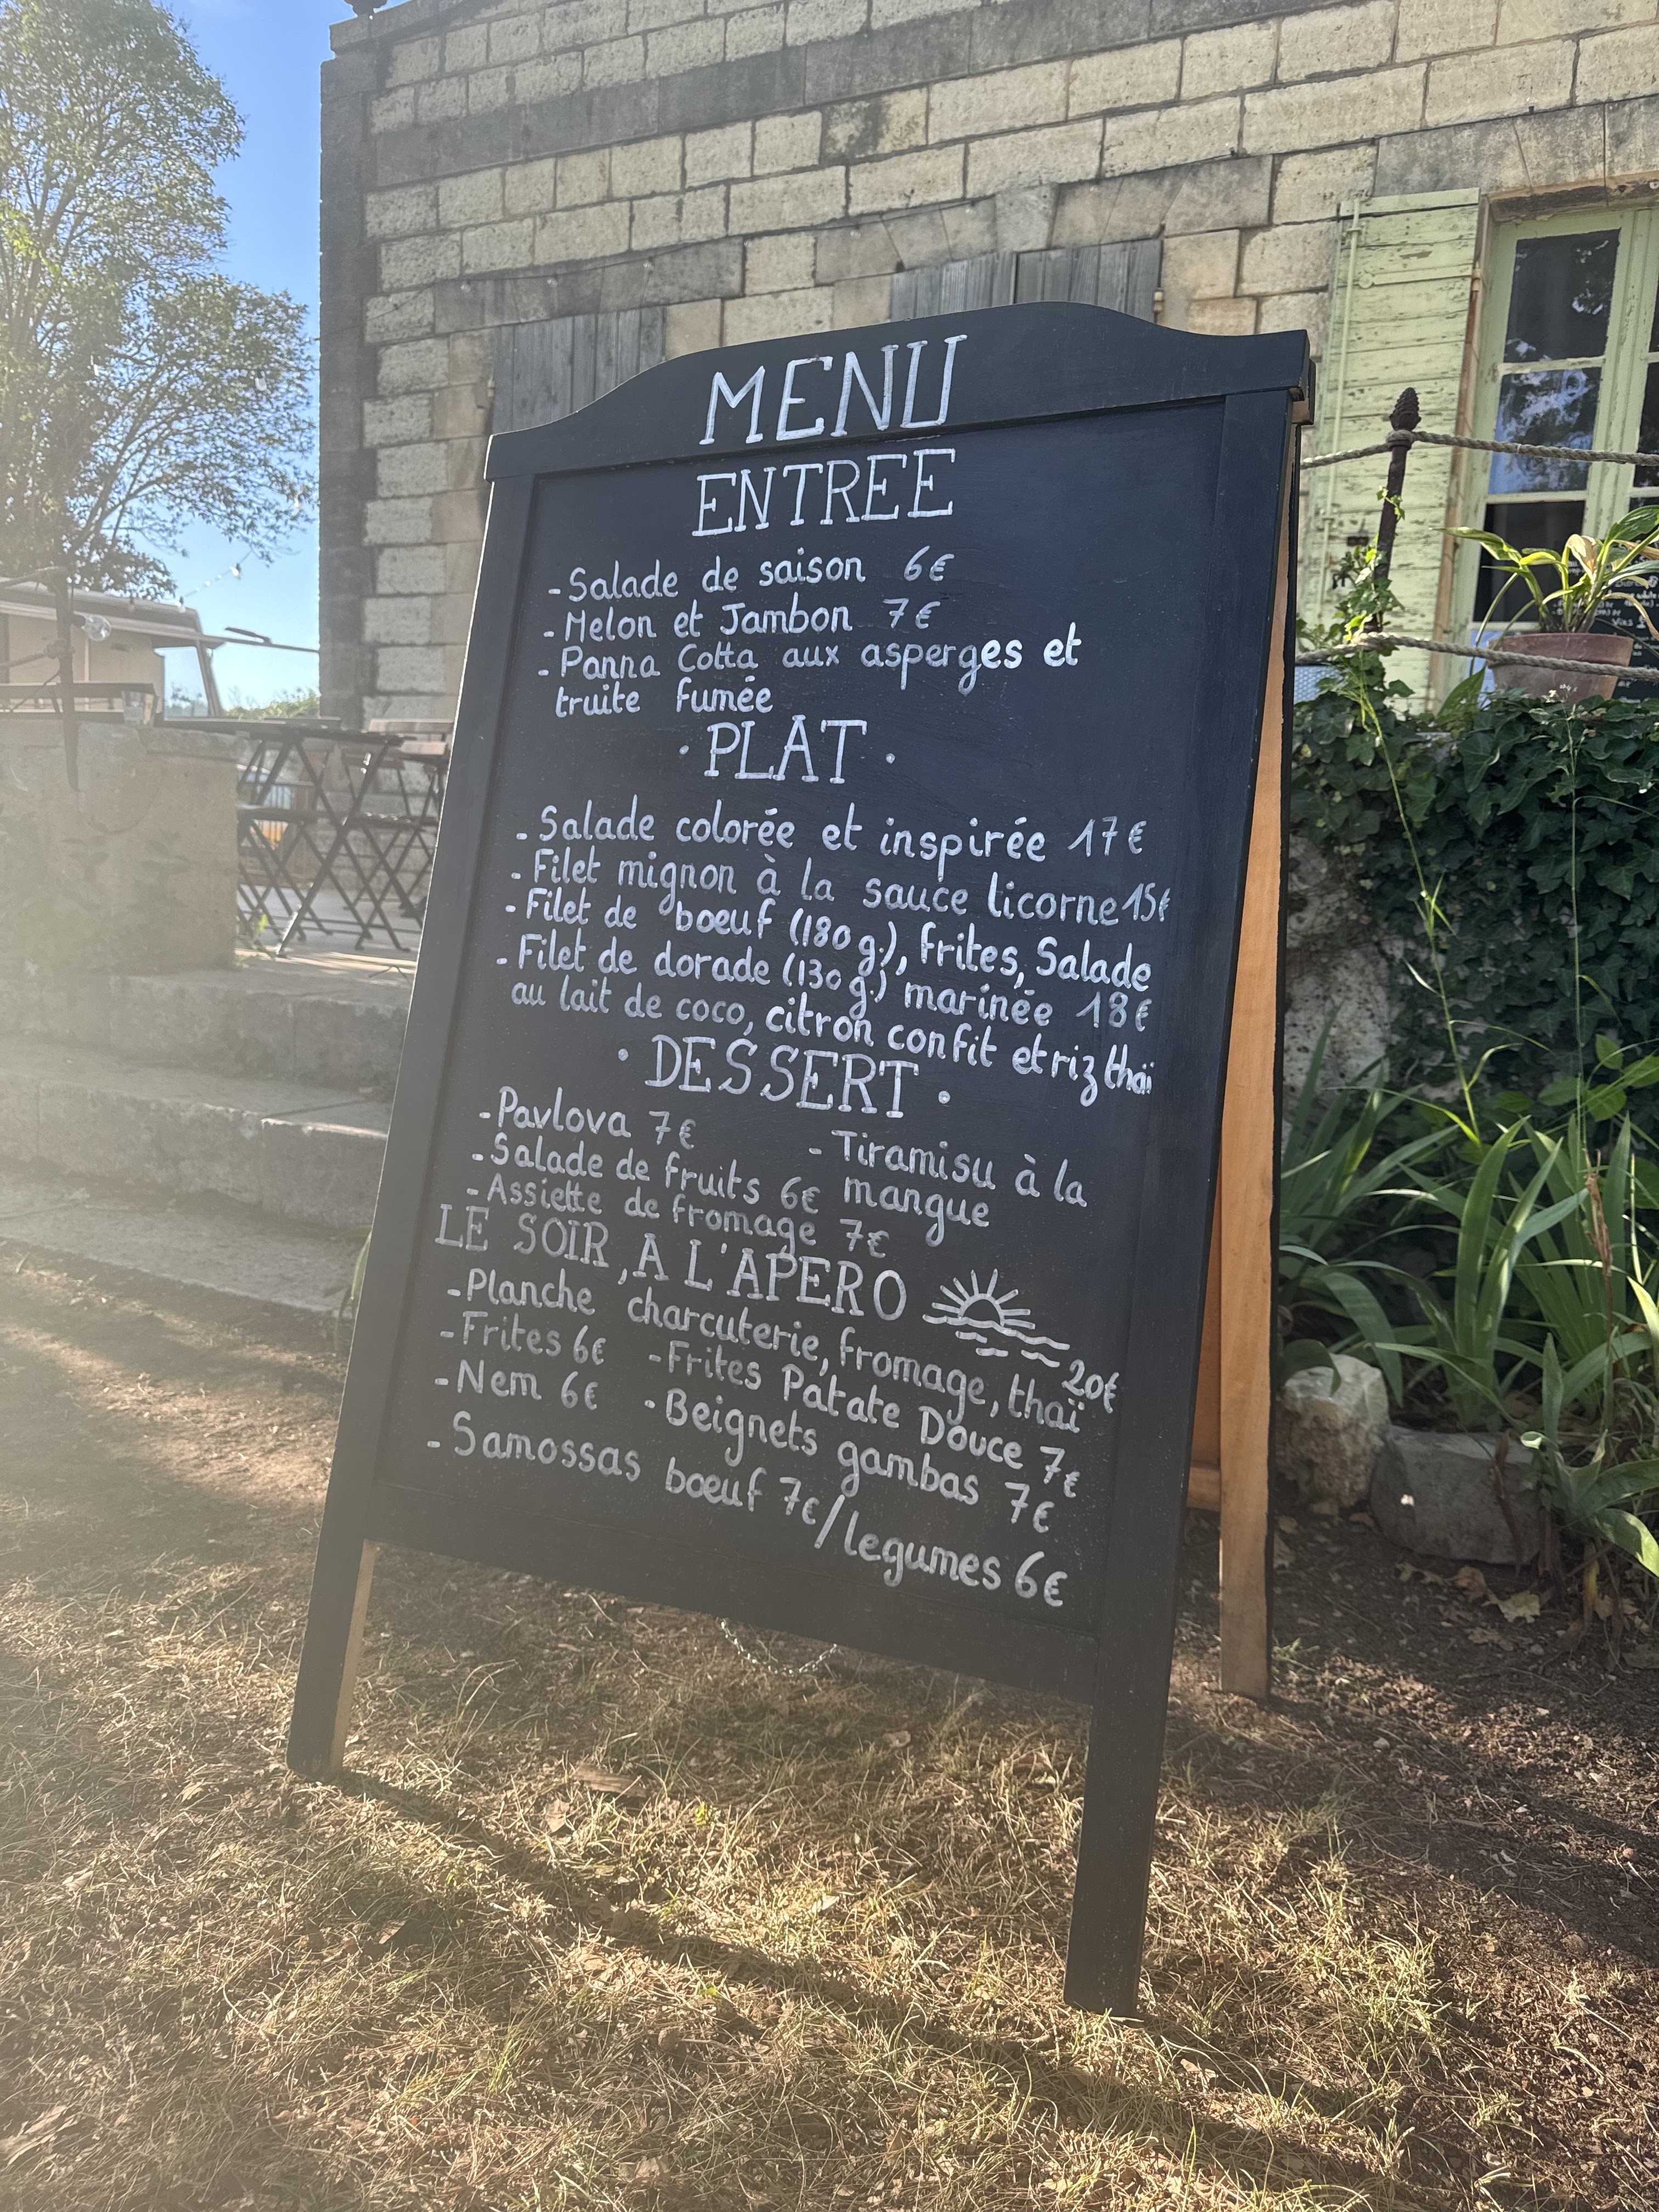 MENU
ENTREE
- Salade de saison 6€
- Melon et Jambon 7€
- Panna Cotta aux asperges et
truite fumée
· PLAT ·
- Salade colorée et inspirée 17€
- Filet mignon à la sauce licorne 15€
- Filet de boeuf (180g.), frites, Salade
- Filet de dorade (130g.) marinée 18€
au lait de coco, citron confit et riz thaï
· DESSERT ·
- Pavlova 7€
- Tiramisu à la
mangue
- Salade de fruits 6€
- Assiette de fromage 7€
LE SOIR, A L'APERO
- Planche charcuterie, fromage, thaï 20€
- Frites 6€ - Frites Patate Douce 7€
- Nem 6€ - Beignets gambas 7€
- Samossas boeuf 7€/legumes 6€